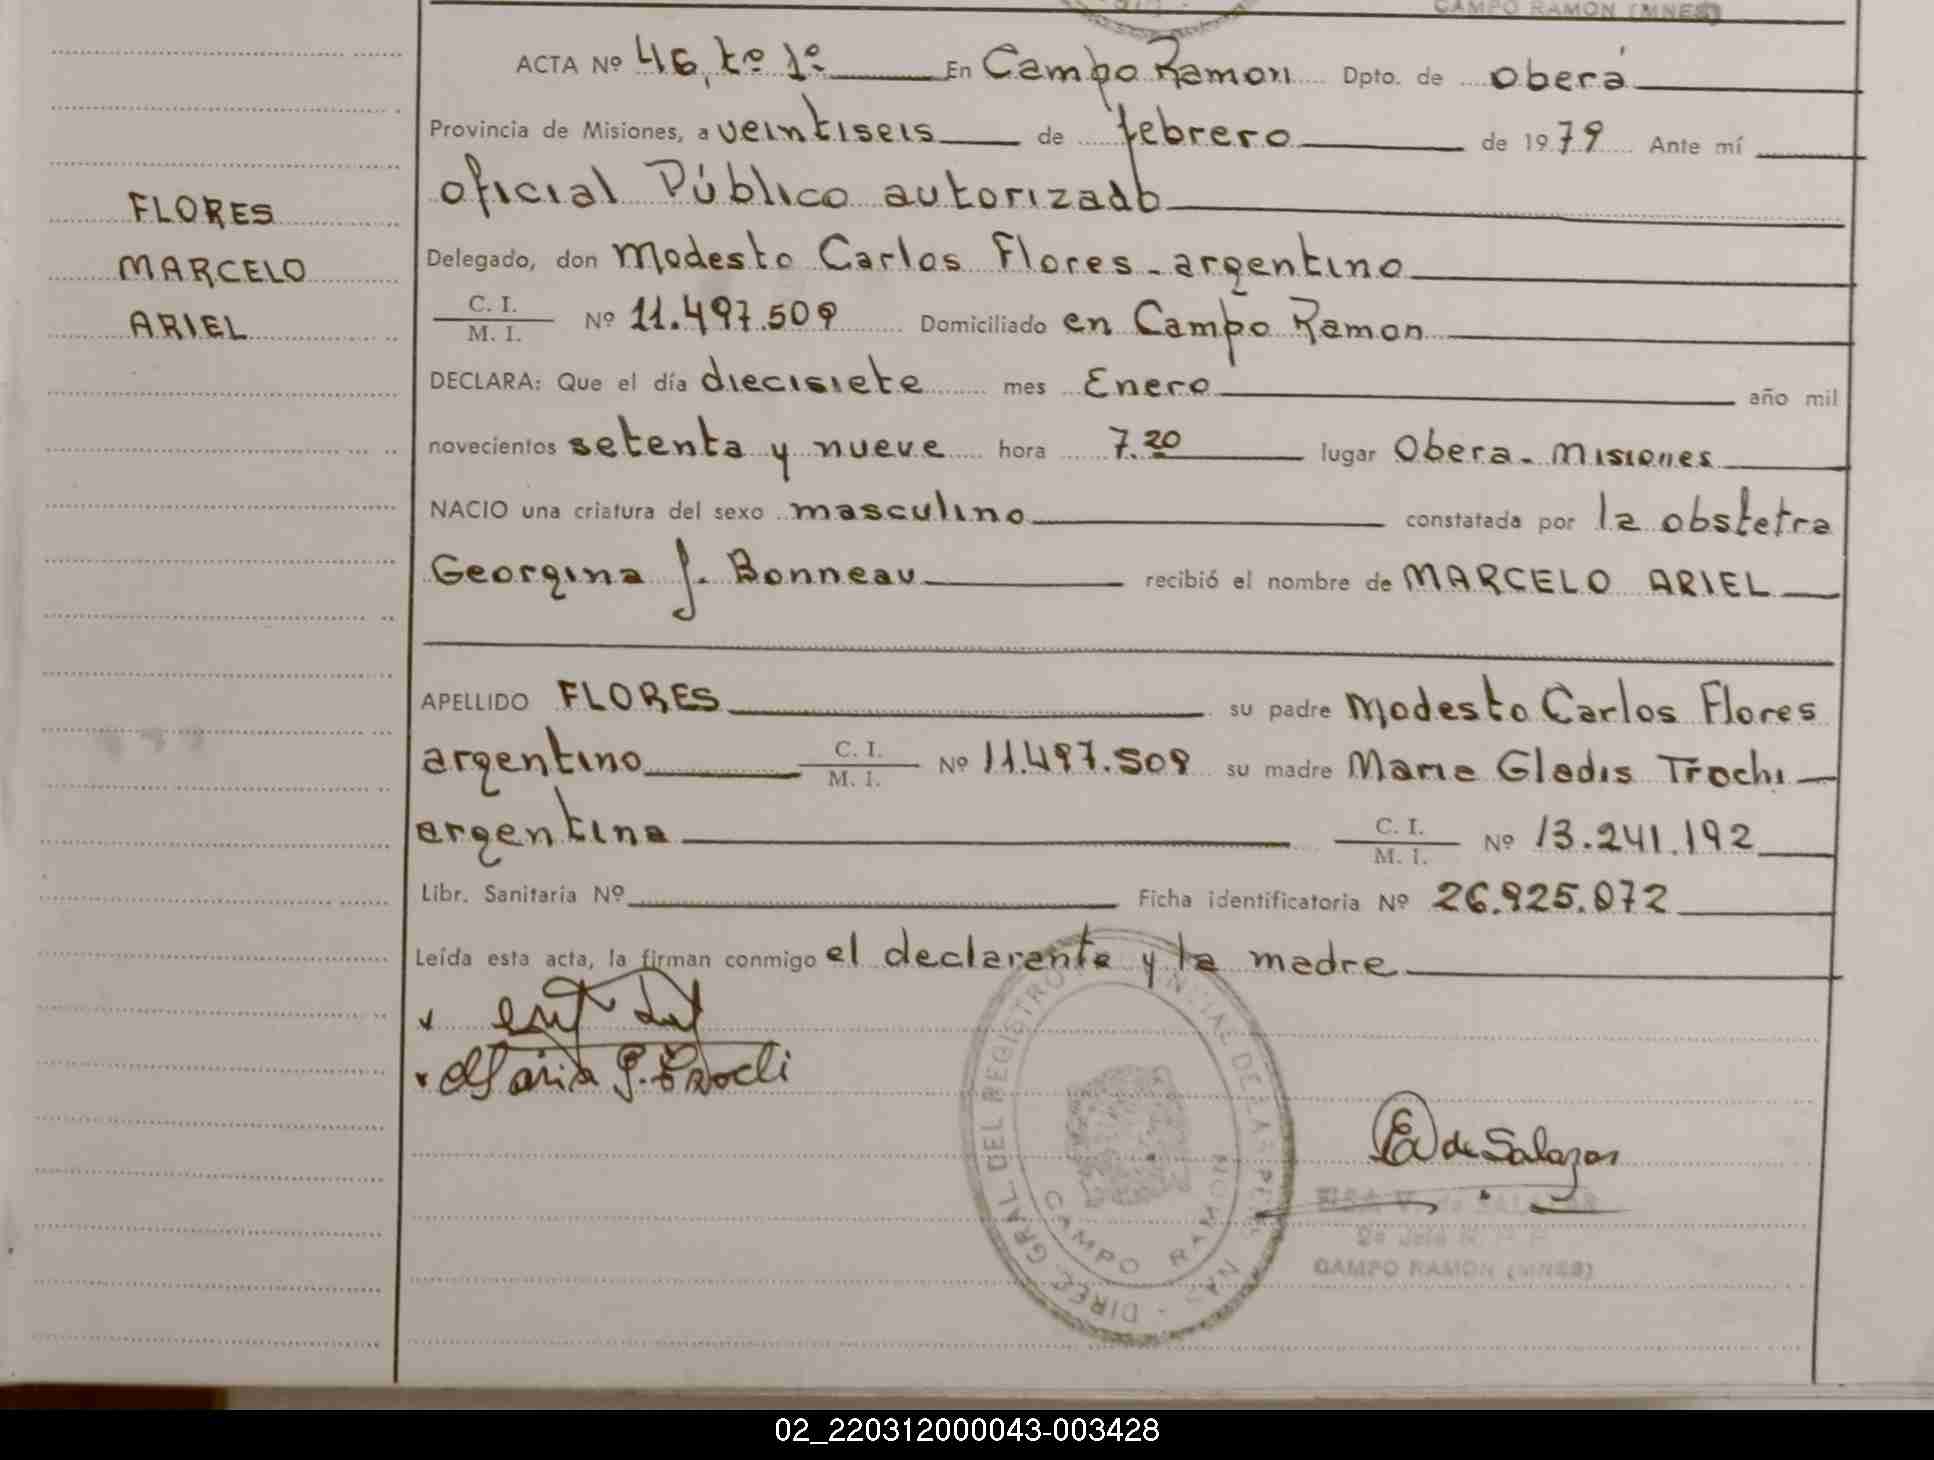 CAMPO RAMON (MNES)
ACTA Nº 46, tº 1º En Campo Ramon Dpto. de Oberá
Provincia de Misiones, a veintiseis de febrero de 1979 Ante mí
oficial Público autorizado
FLORES
MARCELO
ARIEL
Delegado, don Modesto Carlos Flores - argentino
C. I.
M. I. Nº 11.497.509 Domiciliado en Campo Ramon
DECLARA: Que el día diecisiete mes Enero año mil
novecientos setenta y nueve hora 7.20 lugar Obera - Misiones
NACIO una criatura del sexo masculino constatada por la obstetra
Georgina J. Bonneau recibió el nombre de MARCELO ARIEL
APELLIDO FLORES su padre Modesto Carlos Flores
argentino C. I.
M. I. Nº 11.497.509 su madre Maria Gladis Trochi
argentina C. I.
M. I. Nº 13.241.192
Libr. Sanitaria Nº Ficha identificatoria Nº 26.925.072
Leída esta acta, la firman conmigo el declarante y la madre
Maria G. Trochi
DIREC. GRAL DEL REGISTRO PROVINCIAL DE LAS PERSONAS
CAMPO RAMON
E de Salazar
ELSA V. de SALAZAR
CAMPO RAMON (MNES)
02_220312000043-003428